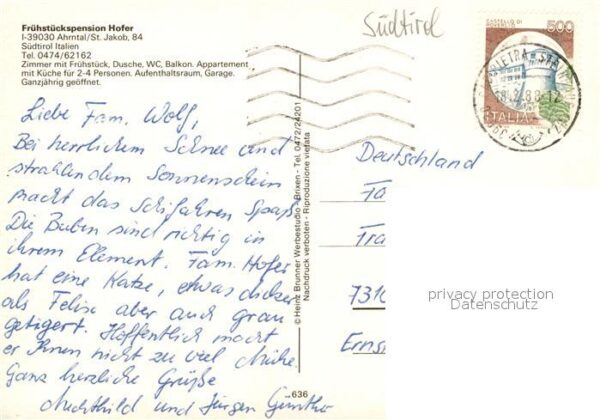 Südtirol
Frühstückspension Hofer
I-39030 Ahrntal/St. Jakob, 84
Südtirol Italien
Tel. 0474/62162
Zimmer mit Frühstück, Dusche, WC, Balkon. Appartement
mit Küche für 2-4 Personen. Aufenthaltsraum, Garage.
Ganzjährig geöffnet.
CASTELLO DI
500
ITALIA
Liebe Fam. Wolf,
Bei herrlichem Schnee und
strahlendem Sonnenschein
macht das Schifahren Spaß
Die Buben sind richtig in
ihrem Element. Fam. Hofer
hat eine Katze, etwas dicker
als Felix aber auch grau
getigert. Hoffentlich macht
er Ihnen nicht zu viel Mühe
Ganz herzliche Grüße
Mechthild und Jürgen
© Heinz Brunner Werbestudio - Brixen - Tel. 0472/24201
Nachdruck verboten - Riproduzione vietata
Deutschland
Fa
Tra
7310
Erns
privacy protection
Datenschutz
636